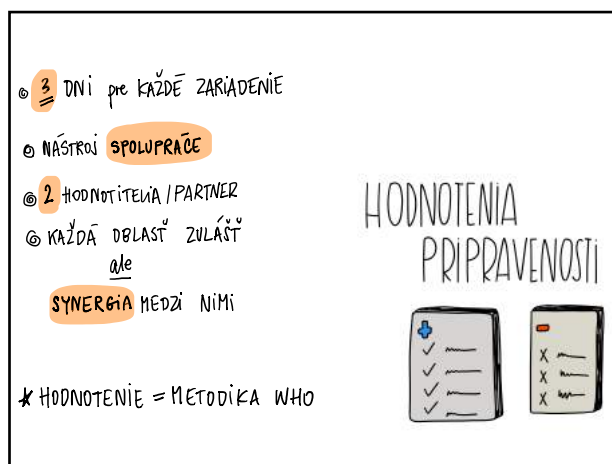 3 DNI pre KAŽDÉ ZARIADENIE
NÁSTROJ SPOLUPRÁCE
2 HODNOTITELIA / PARTNER
KAŽDÁ OBLASŤ ZVLÁŠŤ
ale
SYNERGIA MEDZI NIMI
* HODNOTENIE = METODIKA WHO
HODNOTENIA
PRIPRAVENOSTI